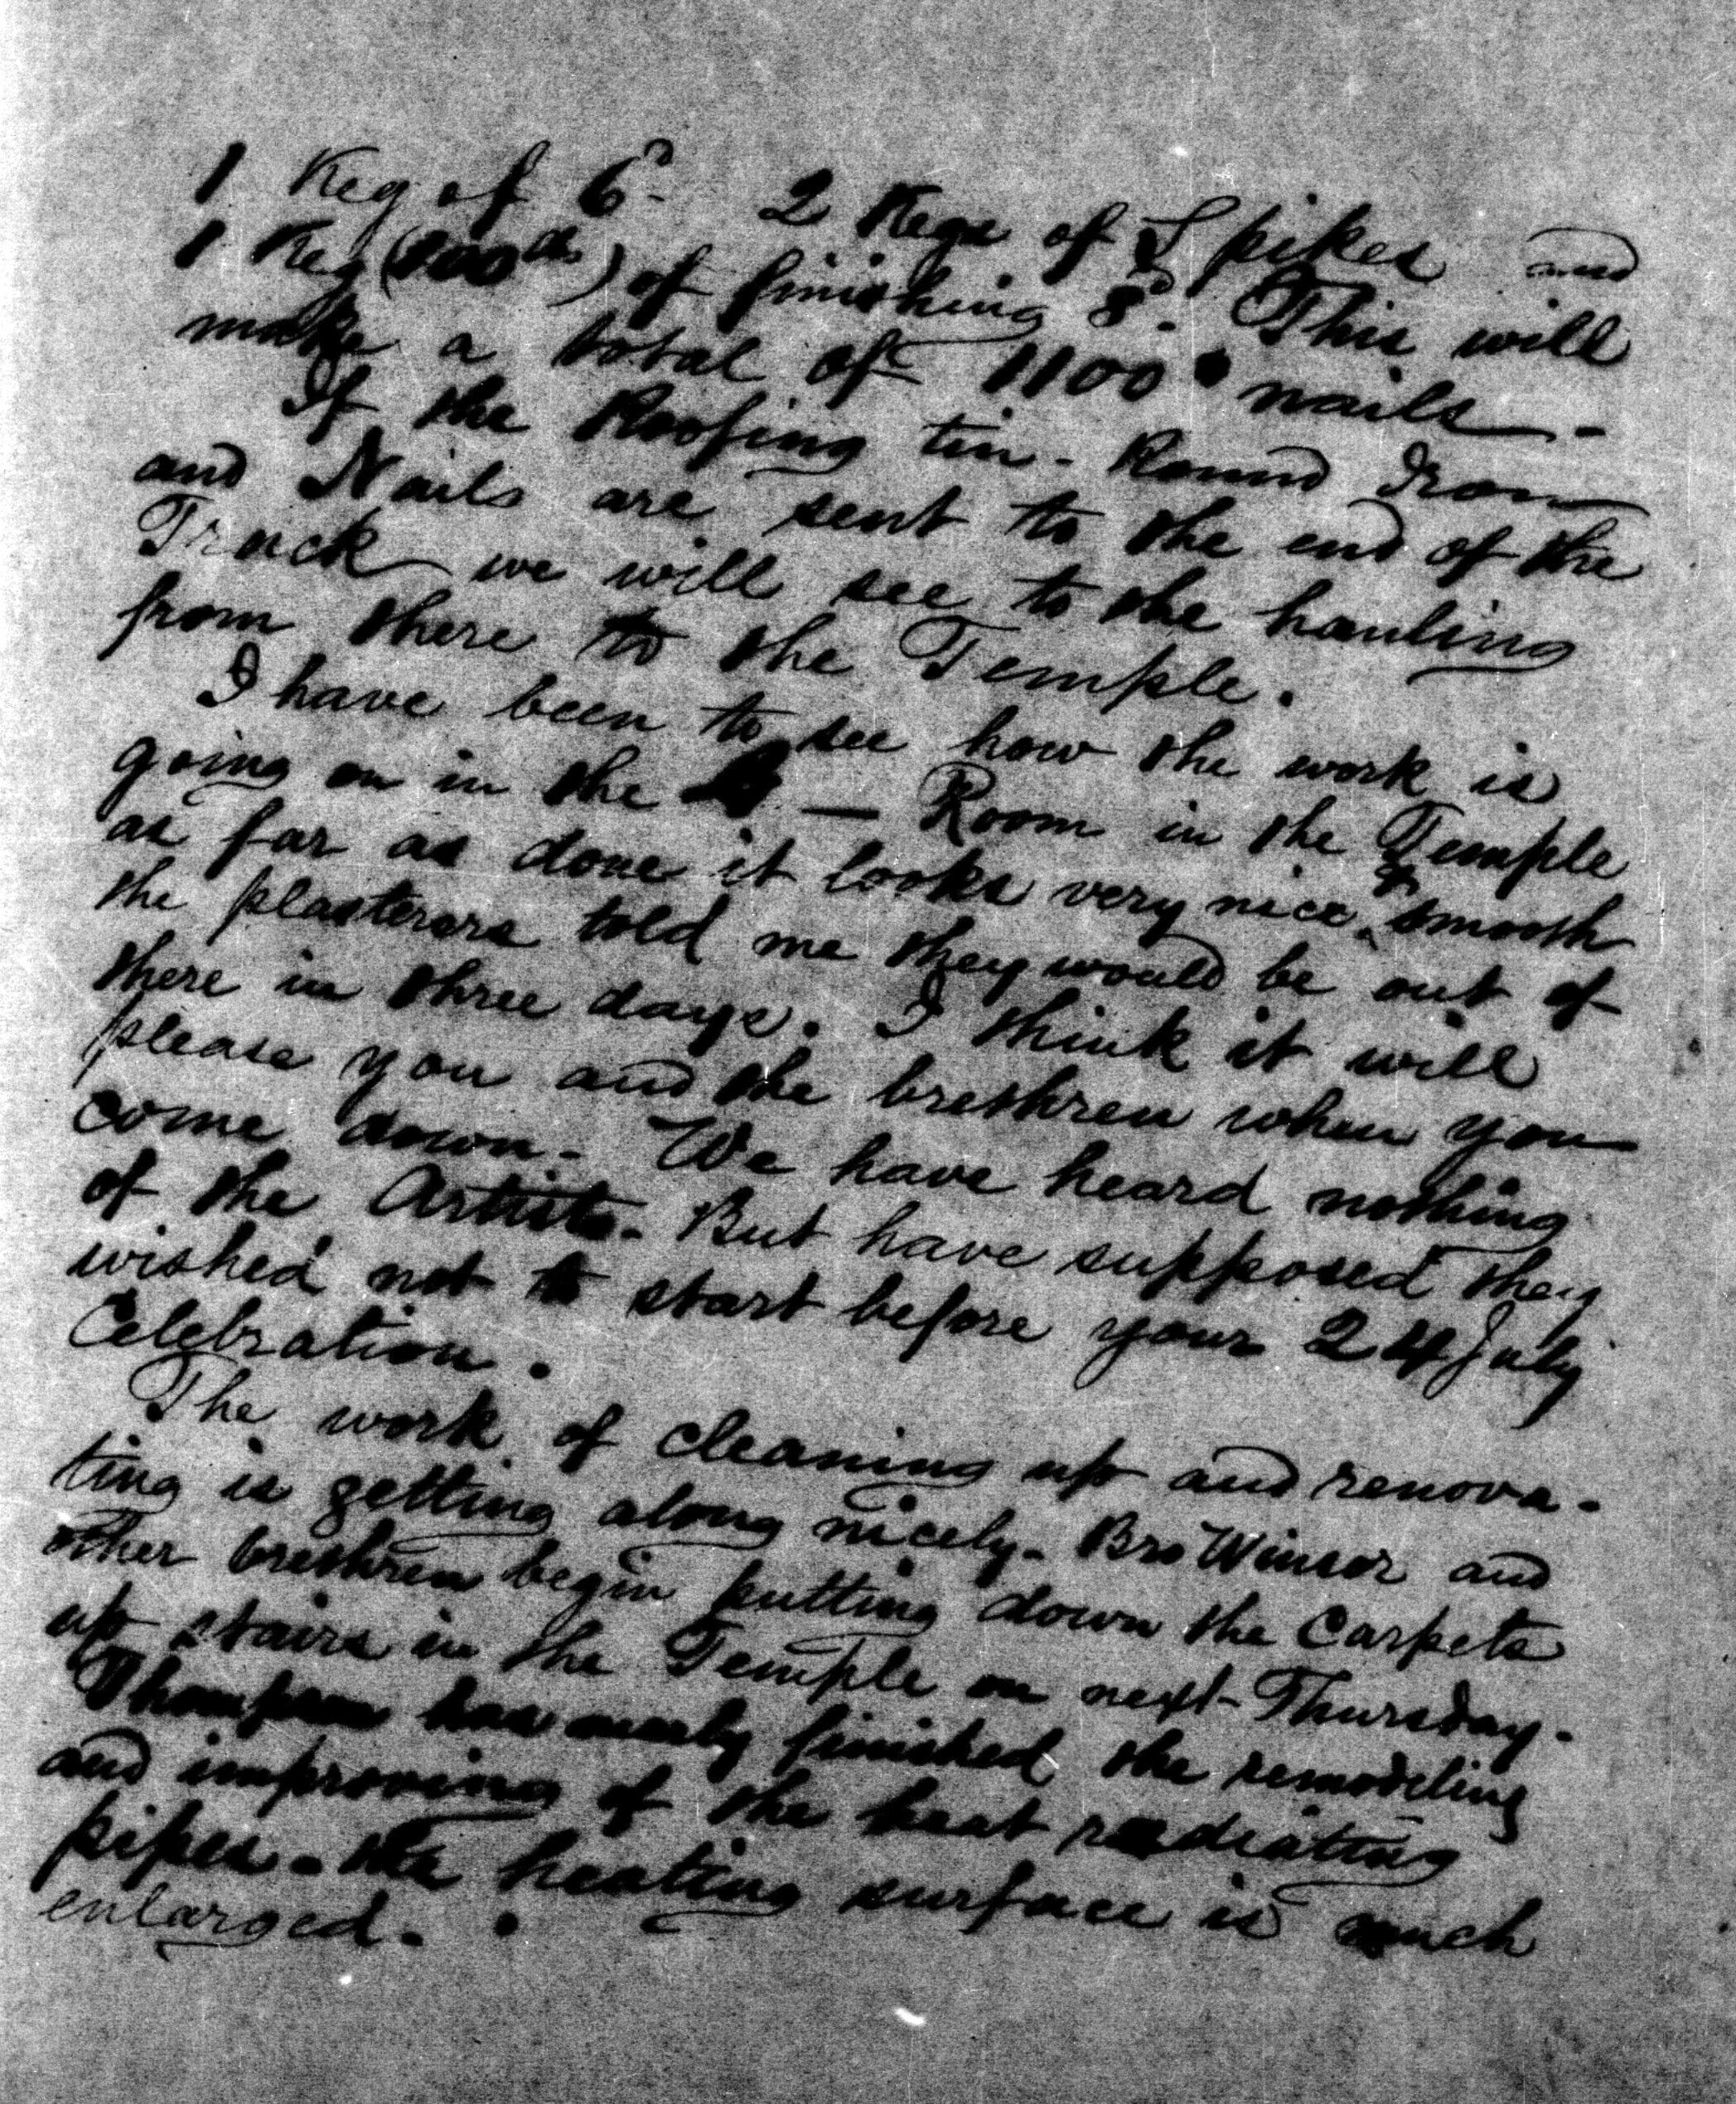 1 Keg of 6d 2 Kegs of Spikes and
1 Keg (100 lbs) of finishing 8d. This will
make a total of 1100 nails—.
If the Roofing tin - Round Iron
and Nails are sent to the end of the
Track we will see to the hauling
from there to the Temple.
I have been to see how the work is
going on in the — Room in the Temple
as far as done it looks very nice & smooth
the plasterers told me they would be out of
there in three days. I think it will
please you and the brethren when you
come down. We have heard nothing
of the Artists. But have supposed they
wished not to start before your 24 July
Celebration.
The work of cleaning up and renova-
ting is getting along nicely. Bro Winsor and
other brethren begin putting down the Carpets
up stairs in the Temple on next Thursday.
Thompson has nearly finished the remodeling
and improving of the heat radiating
pipes. the heating surface is much
enlarged.